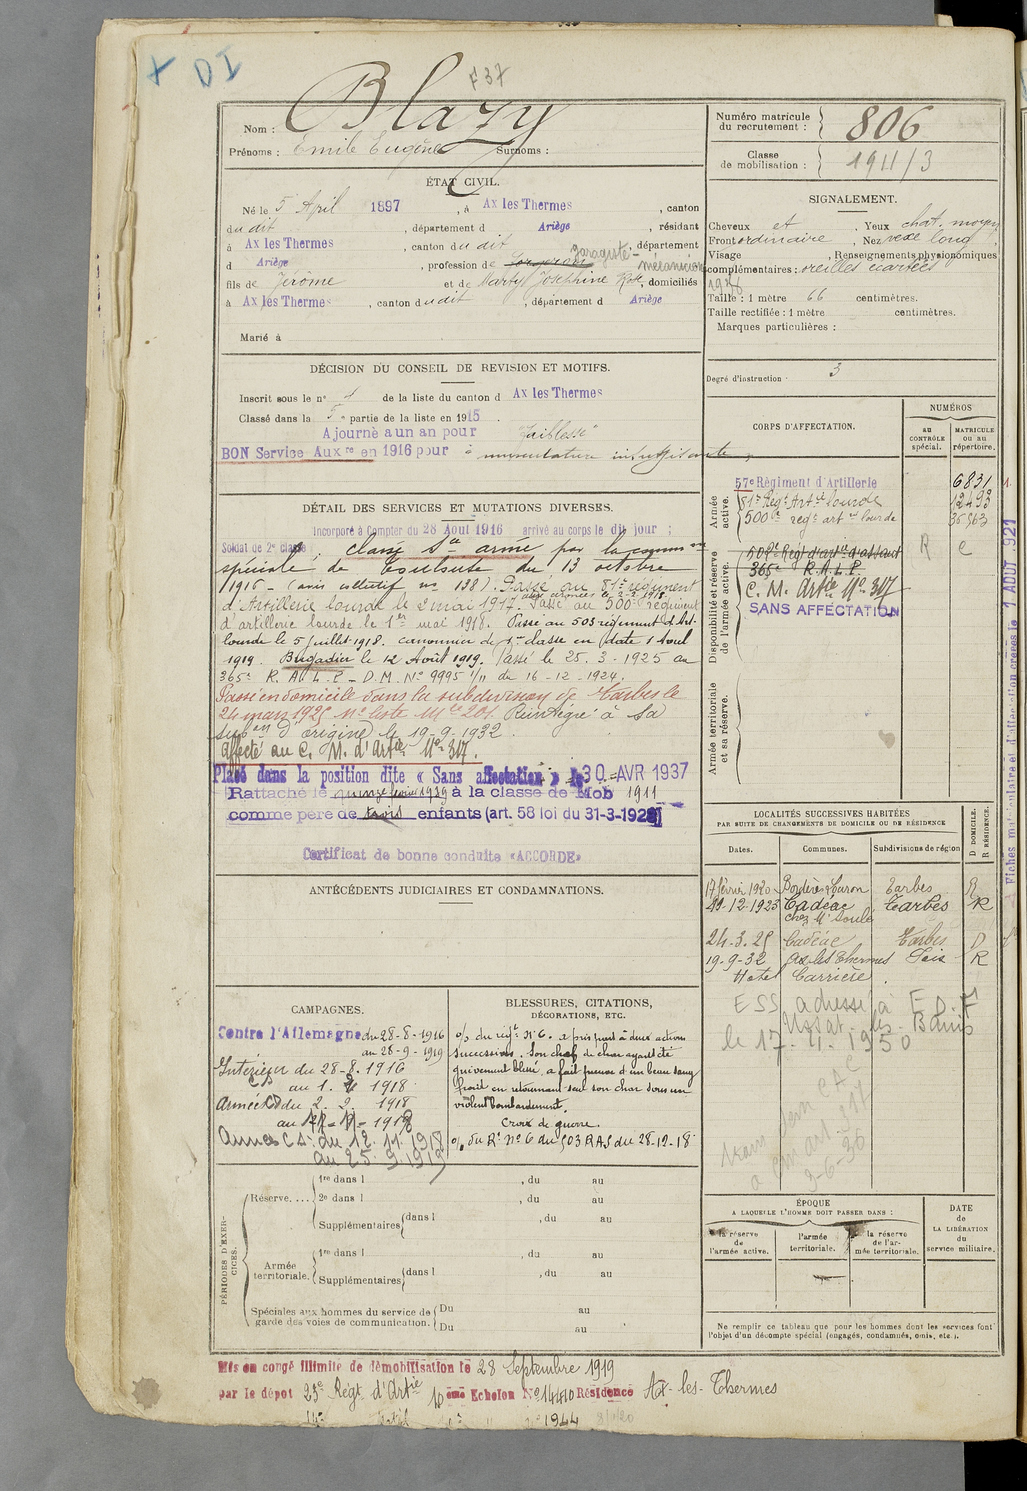 X DI
F 37
Nom : Blazy
Prénoms : Emile Eugène Surnoms :
ÉTAT CIVIL.
Né le 5 April 1897, à Ax les Thermes, canton
du dit, département d Ariège, résidant
à Ax les Thermes, canton du dit, département
d Ariège, profession de garagiste-mécanicien
fils de Jérôme et de Marty Josephine Rose, domiciliés
à Ax les Thermes, canton du dit, département d Ariège
Marié à
DÉCISION DU CONSEIL DE REVISION ET MOTIFS.
Inscrit sous le n° 4 de la liste du canton d Ax les Thermes
Classé dans la 5e partie de la liste en 1915
Ajourné a un an pour "faiblesse"
BON Service Auxre en 1916 pour "musculature insuffisante"
DÉTAIL DES SERVICES ET MUTATIONS DIVERSES.
Incorporé à Compter du 28 Aout 1916 arrivé au corps le dit jour ;
Soldat de 2e classe. classé Sce armé par la common
spéciale de Toulouse du 13 octobre
1916 - (avis collectif no 138). Passé au 81e regiment
aux armées le 2-2-1918.
d'Artillerie lourde le 2 mai 1917. Passé au 500e regiment
d'artillerie lourde le 1er mai 1918. Passé au 503 regiment d'Art.
lourde le 5 juillet 1918. canonnier de 1re classe en date 1 Aout
1919. Brigadier le 12 Août 1919. Passé le 25.3.1925 au
365e R.A.L.P - D.M. No 9995 1/11 du 16-12-1924.
Passé en domicile dans la subdivision de Tarbes le
24 mars 1925 no liste Mle 201. Réintégré à sa
subon d'origine le 19-9-1932.
Affecté au C. M. d'Artie No 317.
Placé dans la position dite « Sans affectation » le 30 AVR 1937
Rattaché le 1939 à la classe de Mob 1911
comme père de trois enfants (art. 58 loi du 31-3-1928)
Certificat de bonne conduite «ACCORDE»
ANTÉCÉDENTS JUDICIAIRES ET CONDAMNATIONS.
CAMPAGNES.
Contre l'Allemagne du 28-8-1916
au 28-9-1919
Intérieur du 28-8-1916
au 1. 2 1918
Armée CD du 2. 2. 1918
au 11-11-1918
Armées C.S. du 12.11.1918
au 25.9.1919
BLESSURES, CITATIONS,
DÉCORATIONS, ETC.
o/ du régt No 6. a pris part à deux actions
successives. Son chef de char ayant été
grièvement blessé, a fait preuve d'un beau sang
froid en retournant seul son char sous un
violent bombardement.
Croix de guerre.
o/ du Rt No 6 du 503 RAS du 28-12-18
PÉRIODES D'EXERCICES.
Réserve....
1re dans l , du au
2e dans l , du au
Supplémentaires dans l , du au
Armée territoriale.
1re dans l , du au
Supplémentaires dans l , du au
Spéciales aux hommes du service de garde des voies de communication.
Du au
Du au
Mis en congé illimité de démobilisation le 28 Septembre 1919
par le dépot 23e Régt d'Artie 10ème Echelon No 14410 Résidence Ax-les-Thermes
Numéro matricule du recrutement : 806
Classe de mobilisation : 1911/3
SIGNALEMENT.
Cheveux et Yeux chat. moyen
Front ordinaire, Nez vexe long
Visage , Renseignements physionomiques
complémentaires : oreilles écartées
1928
Taille : 1 mètre 66 centimètres.
Taille rectifiée : 1 mètre centimètres.
Marques particulières :
Degré d'instruction : 3
CORPS D'AFFECTATION.
NUMÉROS
AU CONTRÔLE spécial.
MATRICULE OU AU répertoire.
Armée active.
57e Régiment d'Artillerie 6831
81e Régt Artie lourde 12493
500e regt artie lourde 35863
Disponibilité et réserve de l'armée active.
502e Régt d'artie d'assaut R C
365e R.A.L.P.
C. M. Artie No 317
SANS AFFECTATION
Armée territoriale et sa réserve.
LOCALITÉS SUCCESSIVES HABITÉES
PAR SUITE DE CHANGEMENTS DE DOMICILE OU DE RÉSIDENCE
Dates. Communes. Subdivisions de région
D DOMICILE. R RÉSIDENCE.
17 février 1920 Bordères Louron Tarbes R
29-12-1923 Cadéac Tarbes R
chez Mr Soulé
24-3-25 Cadéac Tarbes D
19-9-32 Ax-les-Thermes Foix R
Hotel Carrière
ESS adressé à E.D.F
Ussat-les-Bains
le 17.4.1950
ÉPOQUE
A LAQUELLE L'HOMME DOIT PASSER DANS :
la réserve de l'armée active.
l'armée territoriale.
la réserve de l'armée territoriale.
DATE de LA LIBÉRATION du service militaire.
Ne remplir ce tableau que pour les hommes dont les services font
l'objet d'un décompte spécial (engagés, condamnés, omis, etc.).